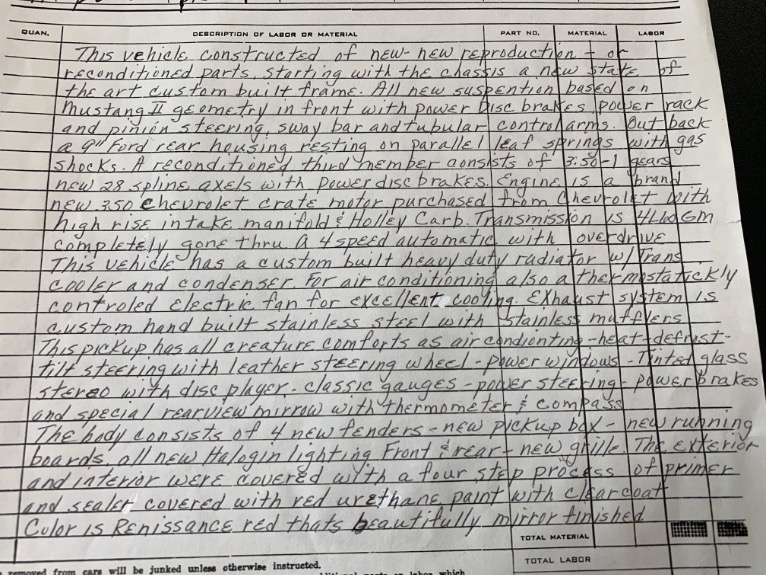 QUAN. DESCRIPTION OF LABOR OR MATERIAL PART NO. MATERIAL LABOR
This vehicle constructed of new-new reproduction - or
reconditioned parts, starting with the chassis a new state of
the art custom built frame. All new suspention based on
Mustang II geometry in front with power Disc brakes, power rack
and pinion steering, sway bar and tubular control arms. Out back
a 9" Ford rear housing resting on parallel leaf springs with gas
shocks. A reconditioned third member consists of 3:50-1 gears
new 28 spline axels with power disc brakes. Engine is a brand
new 350 Chevrolet crate motor purchased from Chevrolet with
high rise intake manifold & Holley Carb. Transmission is 4L60 GM
completely gone thru a 4 speed automatic with overdrive
This vehicle has a custom built heavy duty radiator w/Trans
cooler and condenser. for air conditioning also a thermostatickly
controled Electric fan for excellent cooling. Exhaust system is
custom hand built stainless steel with stainless mufflers
This pickup has all creature comforts as air condionting-heat-defrost-
tilt steering with leather steering wheel-power windows-Tinted glass
stereo with disc player-classic gauges-power steering-power brakes
and special rearview mirrow with thermometer & compass
The body consists of 4 new fenders-new pickup box-new running
boards, all new Halogin lighting Front & rear-new grille. The exterior
and interior were covered with a four step process of primer
and sealer covered with red urethane paint with clearcoat
Color is Renissance red thats beautifully mirror finished
TOTAL MATERIAL
TOTAL LABOR
removed from cars will be junked unless otherwise instructed.